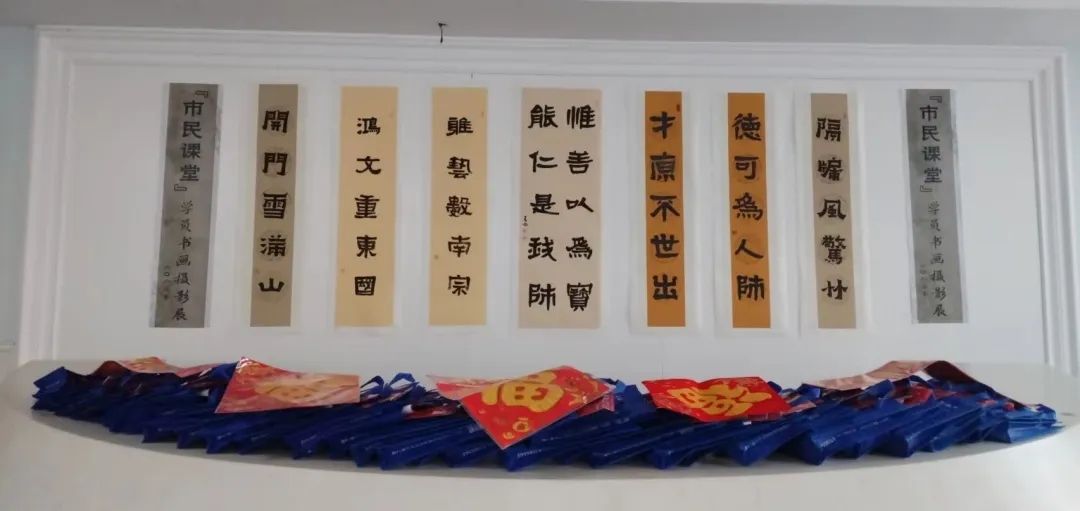 『市民课堂』学员书画摄影展
隔牖風驚竹
德可為人師
才原不世出
惟善以為寶
能仁是我師
雅藝數南宗
鴻文重東國
開門雪滿山
『市民课堂』学员书画摄影展
福